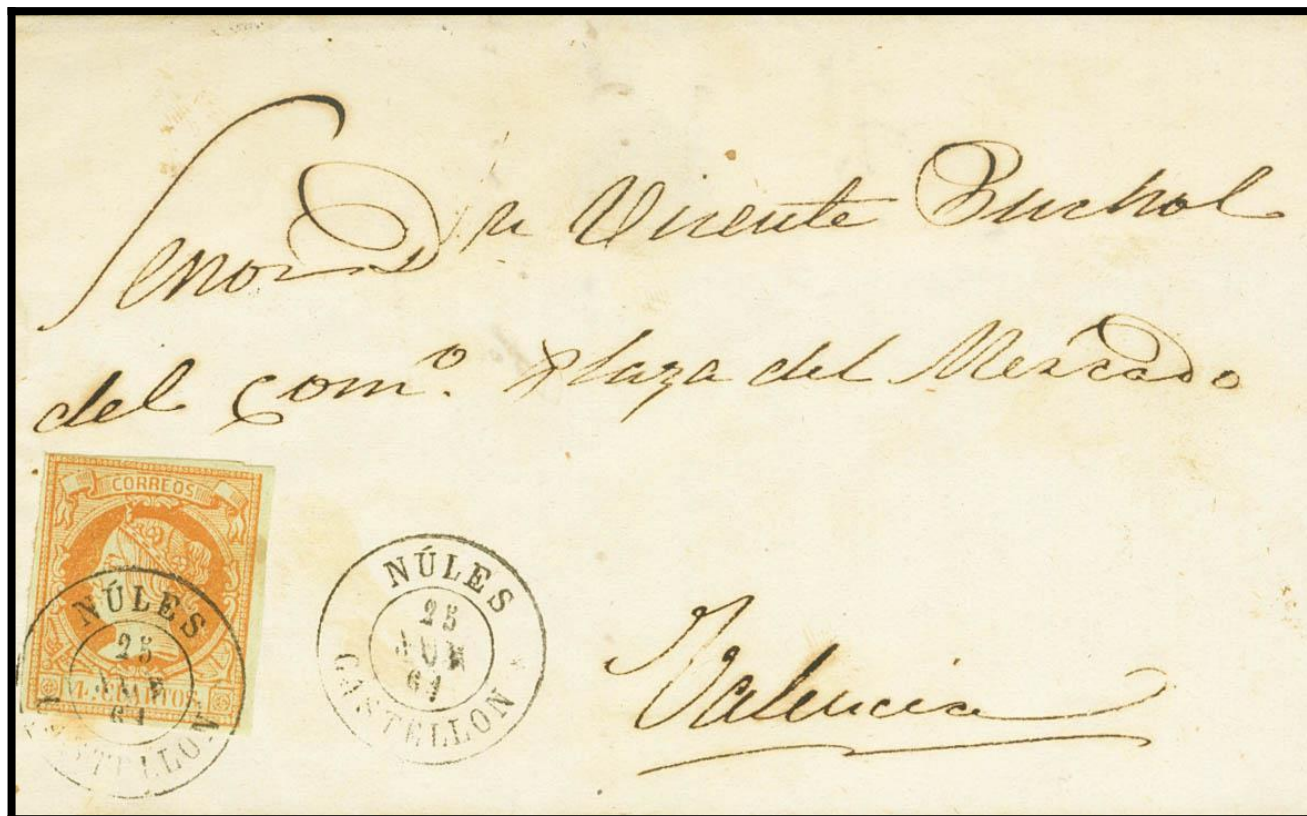 Señor Dn Vicente Buchol
del comº. Plaza del Mercado
CORREOS
4 CUARTOS
NÚLES
25
JUN
61
CASTELLON
NÚLES
25
JUN
61
CASTELLON
Valencia